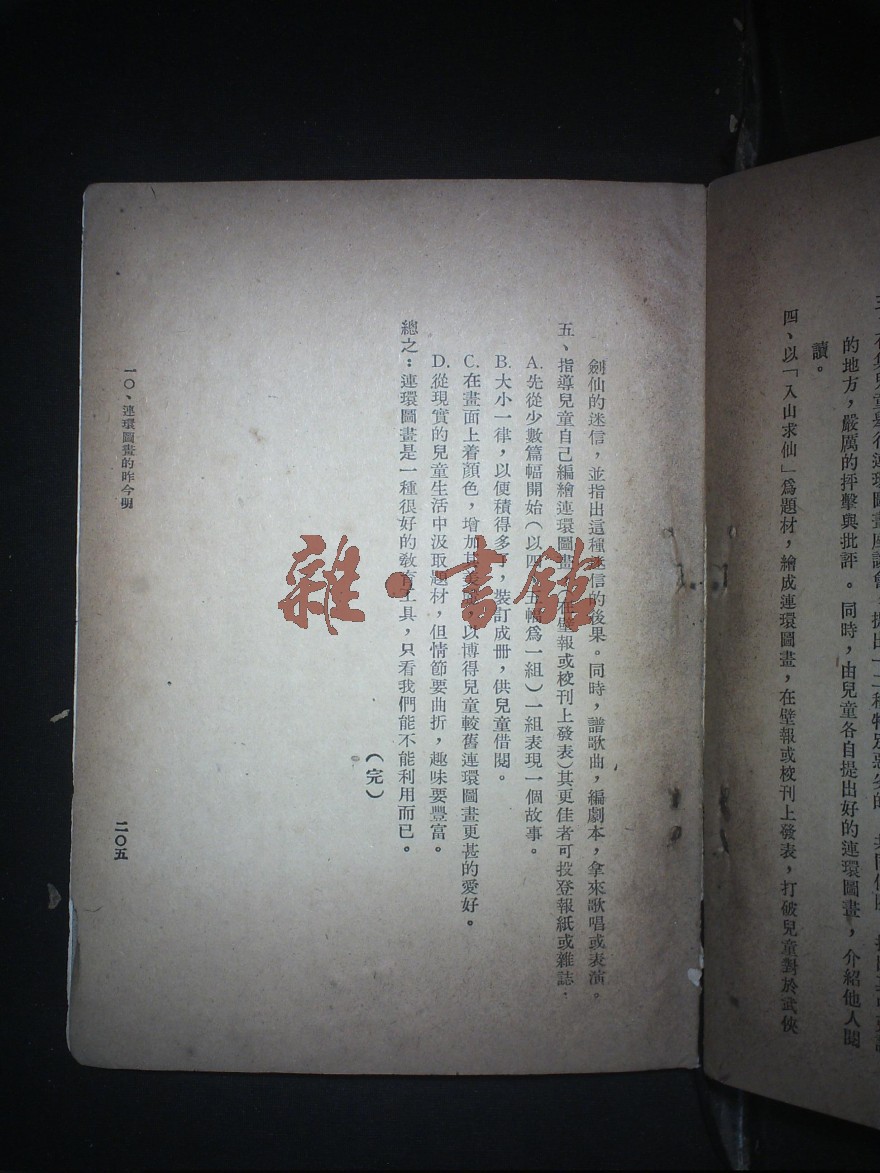 的地方，嚴厲的抨擊與批評。同時，由兒童各自提出好的連環圖畫，介紹他人閱
讀。
四、以「入山求仙」爲題材，繪成連環圖畫，在壁報或校刊上發表，打破兒童對於武俠
劍仙的迷信，並指出這種迷信的後果。同時，譜歌曲，編劇本，拿來歌唱或表演。
五、指導兒童自己編繪連環圖畫（在壁報或校刊上發表）其更佳者可投登報紙或雜誌．
A.先從少數篇幅開始（以四、五幅爲一組）一組表現一個故事。
B.大小一律，以便積得多了，裝訂成冊，供兒童借閱。
C.在畫面上着顏色，增加其美，以博得兒童較舊連環圖畫更甚的愛好。
D.從現實的兒童生活中汲取題材，但情節要曲折，趣味要豐富。
總之：連環圖畫是一種很好的教育工具，只看我們能不能利用而已。
（完）
一〇、連環圖畫的昨今明
二〇五
雜·書館